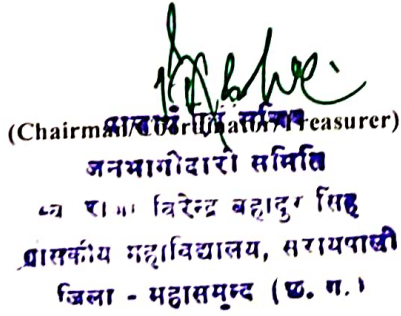 प्राचार्य एवं सचिव
(Chairman/Coordinator/Treasurer)
जनभागीदारी समिति
स्व राजा विरेन्द्र बहादुर सिंह
शासकीय महाविद्यालय, सरायपाली
जिला - महासमुन्द (छ. ग.)